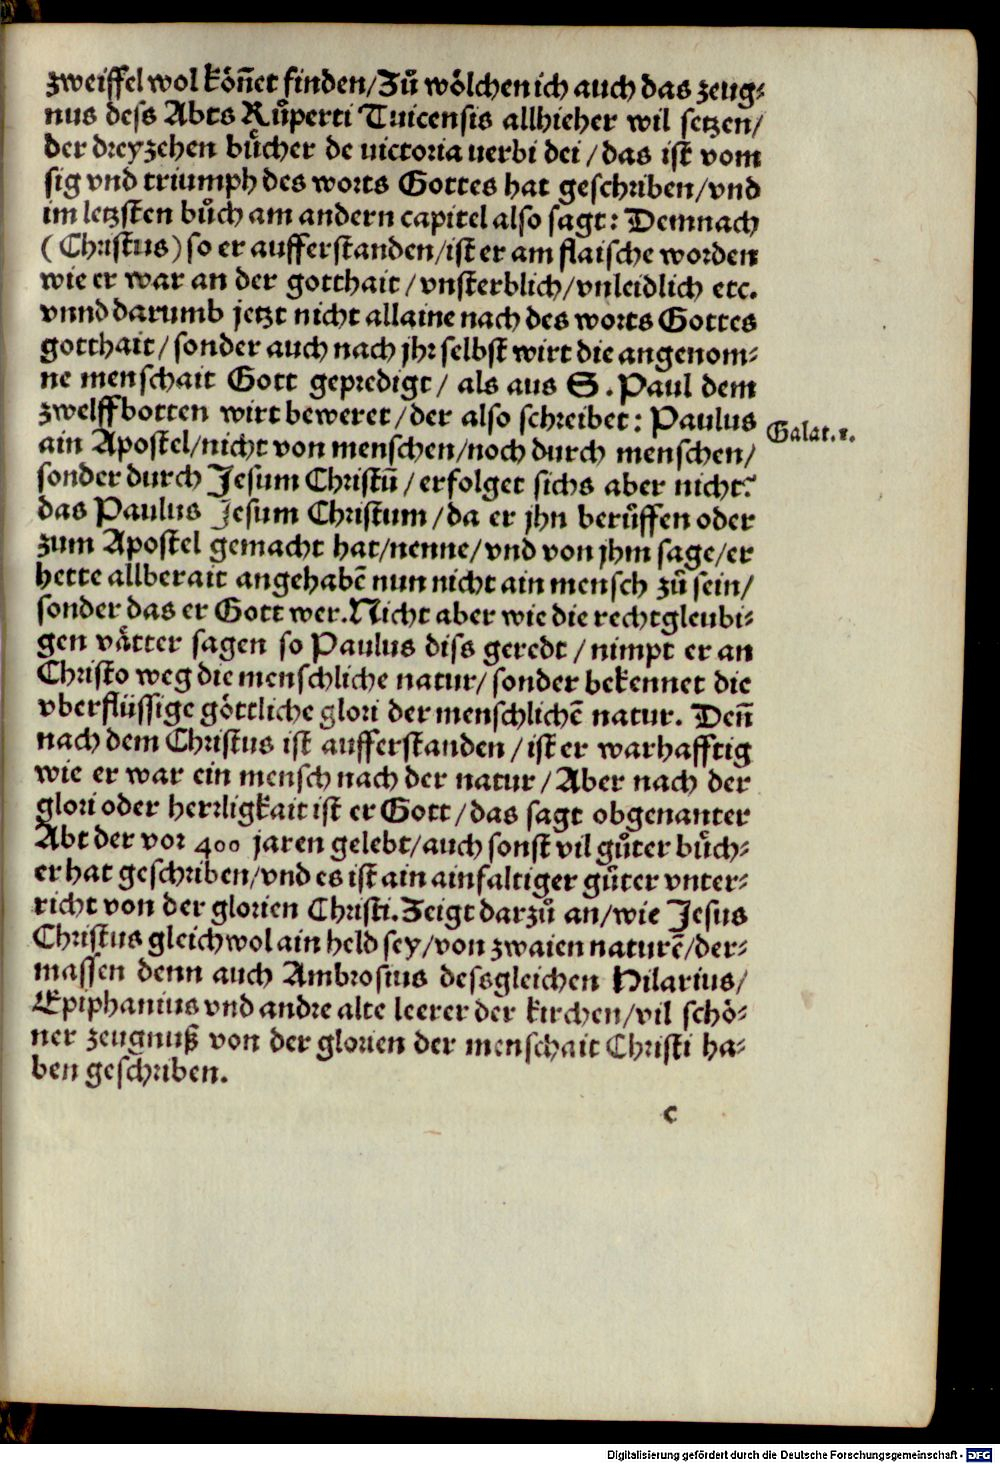 zweiffel wol koͤn̄et finden/Zuͦ woͤlchen ich auch das zeug⸗
nus dess Abts Ruͦperti Tuicensis allhieher wil setzen/
der dreyzehen buͤcher de uictoria uerbi dei/das ist vom
sig vnd triumph des worts Gottes hat geschriben/vnd
im letzsten buͦch am andern capitel also sagt: Demnach
(Christus) so er aufferstanden/ist er am flaische worden
wie er war an der gotthait/vnsterblich/vnleidlich etc.
vnnd darumb jetzt nicht allaine nach des worts Gottes
gotthait/sonder auch nach jhr selbst wirt die angenom⸗
ne menschait Gott gepredigt/als aus S. Paul dem
zwelffbotten wirt beweret/der also schreibet: Paulus
Galat.1.
ain Apostel/nicht von menschen/noch durch menschen/
sonder durch Jesum Christū/erfolget sichs aber nicht?
das Paulus Jesum Christum/da er jhn beruͤffen oder
zum Apostel gemacht hat/nenne/vnd von jhm sage/er
hette allberait angehabē nun nicht ain mensch zuͦ sein/
sonder das er Gott wer. Nicht aber wie die rechtgleubi⸗
gen vaͤtter sagen so Paulus diss geredt/nimpt er an
Christo weg die menschliche natur/sonder bekennet die
vberflüssige goͤttliche glori der menschlichē natur. Den̄
nach dem Christus ist aufferstanden/ist er warhafftig
wie er war ein mensch nach der natur/Aber nach der
glori oder herrligkait ist er Gott/das sagt obgenanter
Abt der vor 400 jaren gelebt/auch sonst vil guͦter buͤch⸗
er hat geschriben/vnd es ist ain ainfaltiger guͦter vnter⸗
richt von der glorien Christi. Zeigt darzuͦ an/wie Jesus
Christus gleichwol ain held sey/von zwaien naturē/der⸗
massen denn auch Ambrosius dessgleichen Hilarius/
Epiphanius vnd andre alte leerer der kirchen/vil schoͤ⸗
ner zeugnuß von der glorien der menschait Christi ha⸗
ben geschriben.
c
Digitalisierung gefördert durch die Deutsche Forschungsgemeinschaft - DFG